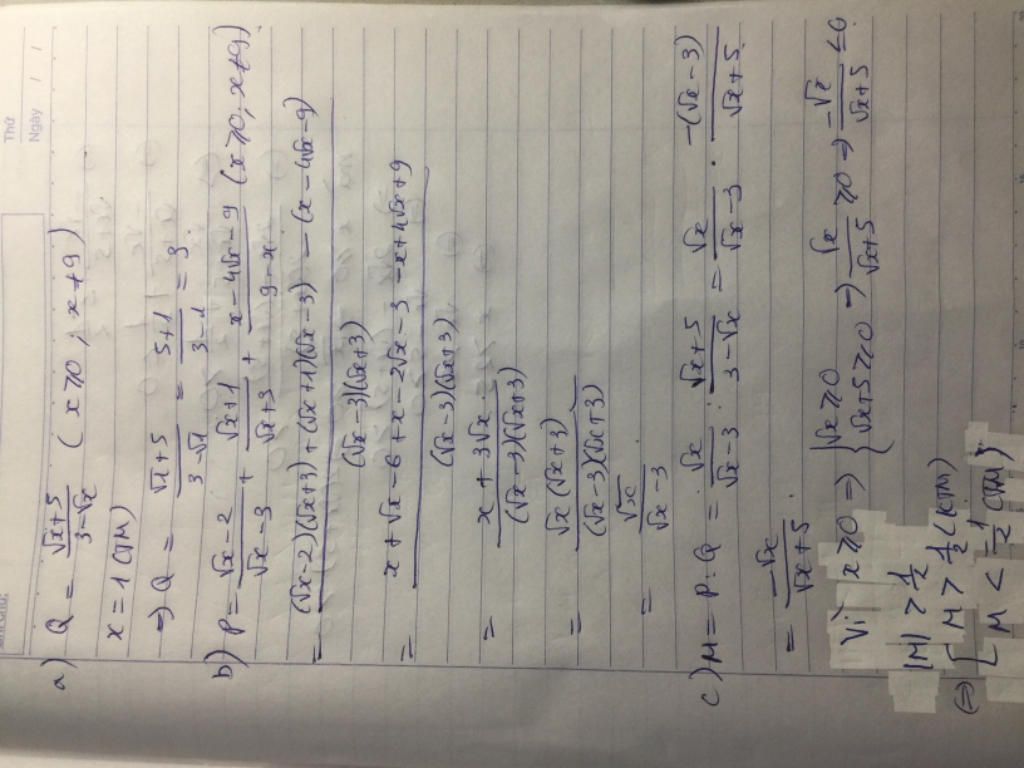 Thứ
Ngày
a) Q = (√x+5)/(3-√x) (x ≥ 0 ; x ≠ 9)
x = 1 (TM)
⇒ Q = (√1+5)/(3-√1) = (5+1)/(3-1) = 3
b) P = (√x-2)/(√x-3) + (√x+1)/(√x+3) + (x-4√x-9)/(9-x) (x ≥ 0; x ≠ 9)
= ((√x-2)(√x+3)+(√x+1)(√x-3)-(x-4√x-9))/((√x-3)(√x+3))
= (x+√x-6+x-2√x-3-x+4√x+9)/((√x-3)(√x+3))
= (x+3√x)/((√x-3)(√x+3))
= (√x(√x+3))/((√x-3)(√x+3))
= √x/(√x-3)
c) M = P:Q = √x/(√x-3) : (√x+5)/(3-√x) = √x/(√x-3) . -(√x-3)/(√x+5)
= -√x/(√x+5)
Vì x ≥ 0 ⇒ { √x ≥ 0 √x+5 ≥ 0 ⇒ √x/(√x+5) ≥ 0 ⇒ -√x/(√x+5) ≤ 0
|M| > 1/2
⇔ [ M > 1/2 (KTM)
M < -1/2 (TM)